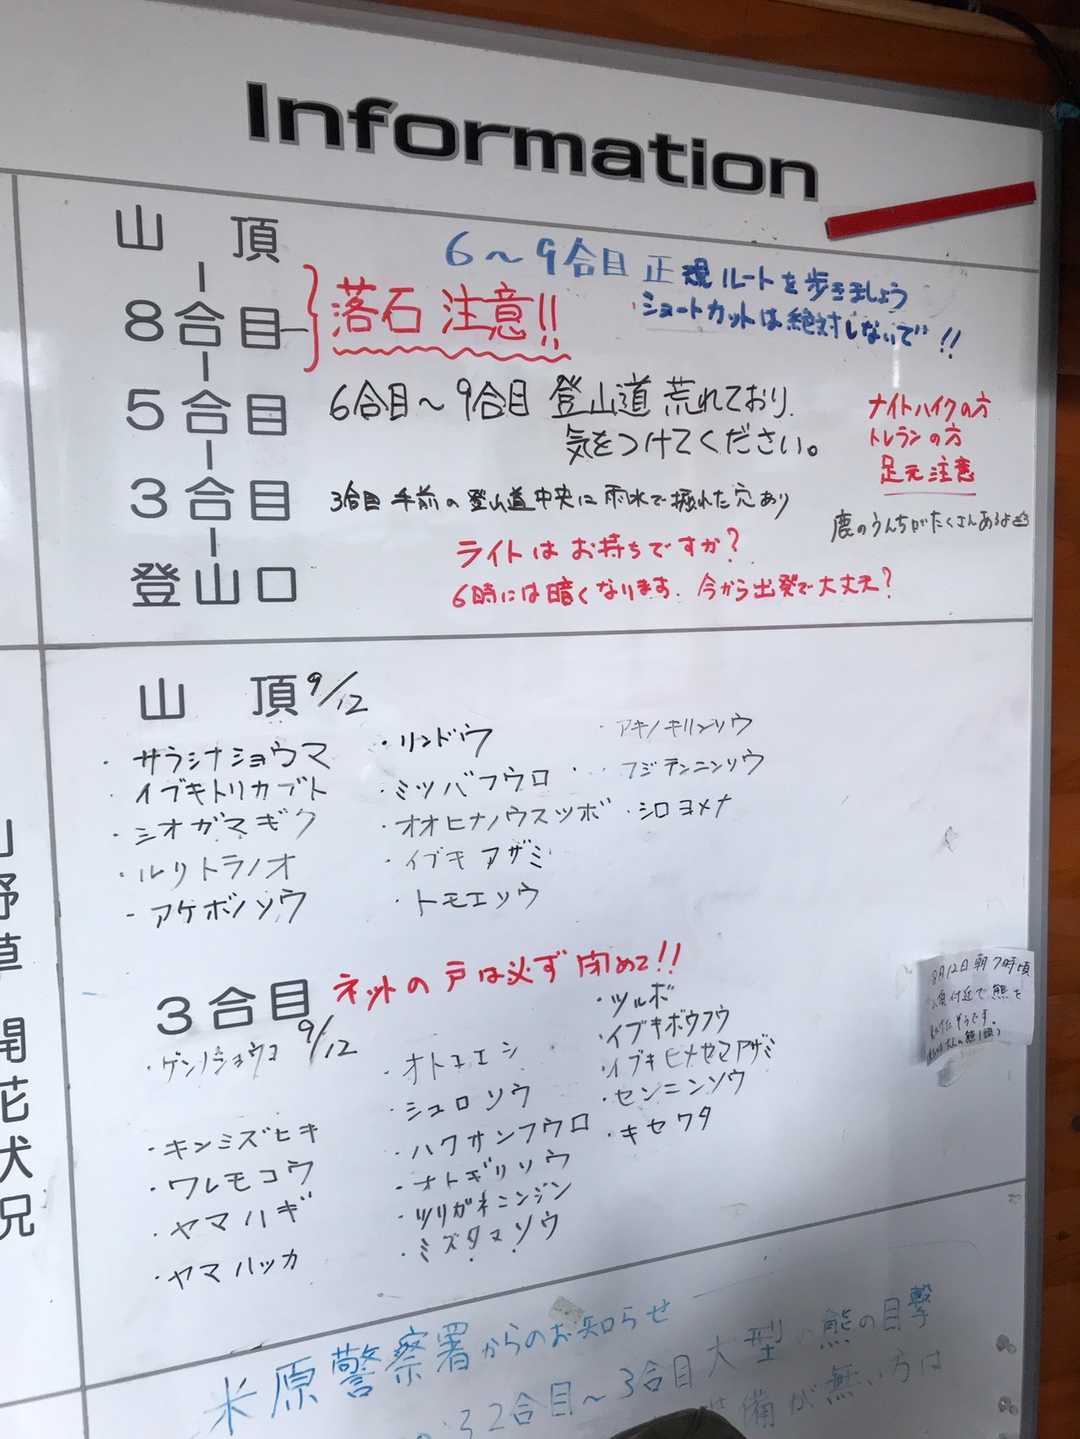 Information
山頂
8合目
5合目
3合目
登山口
落石注意!!
6〜9合目 正規ルートを歩きましょう
ショートカットは絶対しないで!!
6合目〜9合目 登山道 荒れており
気をつけてください。
ナイトハイクの方
トレランの方
足元注意
3合目 手前の登山道中央に雨水で掘れた穴あり
鹿のうんちがたくさんあるよ
ライトはお持ちですか?
6時には暗くなります. 今から出発で大丈夫?
山頂 9/12
・サラシナショウマ
・イブキトリカブト
・シオガマギク
・ルリトラノオ
・アケボノソウ
・リンドウ
・ミツバフウロ
・オオヒナノウスツボ
・イブキアザミ
・トモエソウ
・アキノキリンソウ
・フジテンニンソウ
・シロヨメナ
3合目 9/12
ネットの戸は必ず閉めて!!
・ゲンノショウコ
・キンミズヒキ
・ワレモコウ
・ヤマハギ
・ヤマハッカ
・オトコエシ
・シュロソウ
・ハクサンフウロ
・オトギリソウ
・ツリガネニンジン
・ミズタマソウ
・ツルボ
・イブキボウフウ
・イブキヒメヤマアザミ
・センニンソウ
・キセワタ
8月12日朝7時頃
付近で熊を
たそうです。
野草開花状況
米原警察署からのお知らせ
2合目〜3合目大型の熊の目撃
備が無い方は